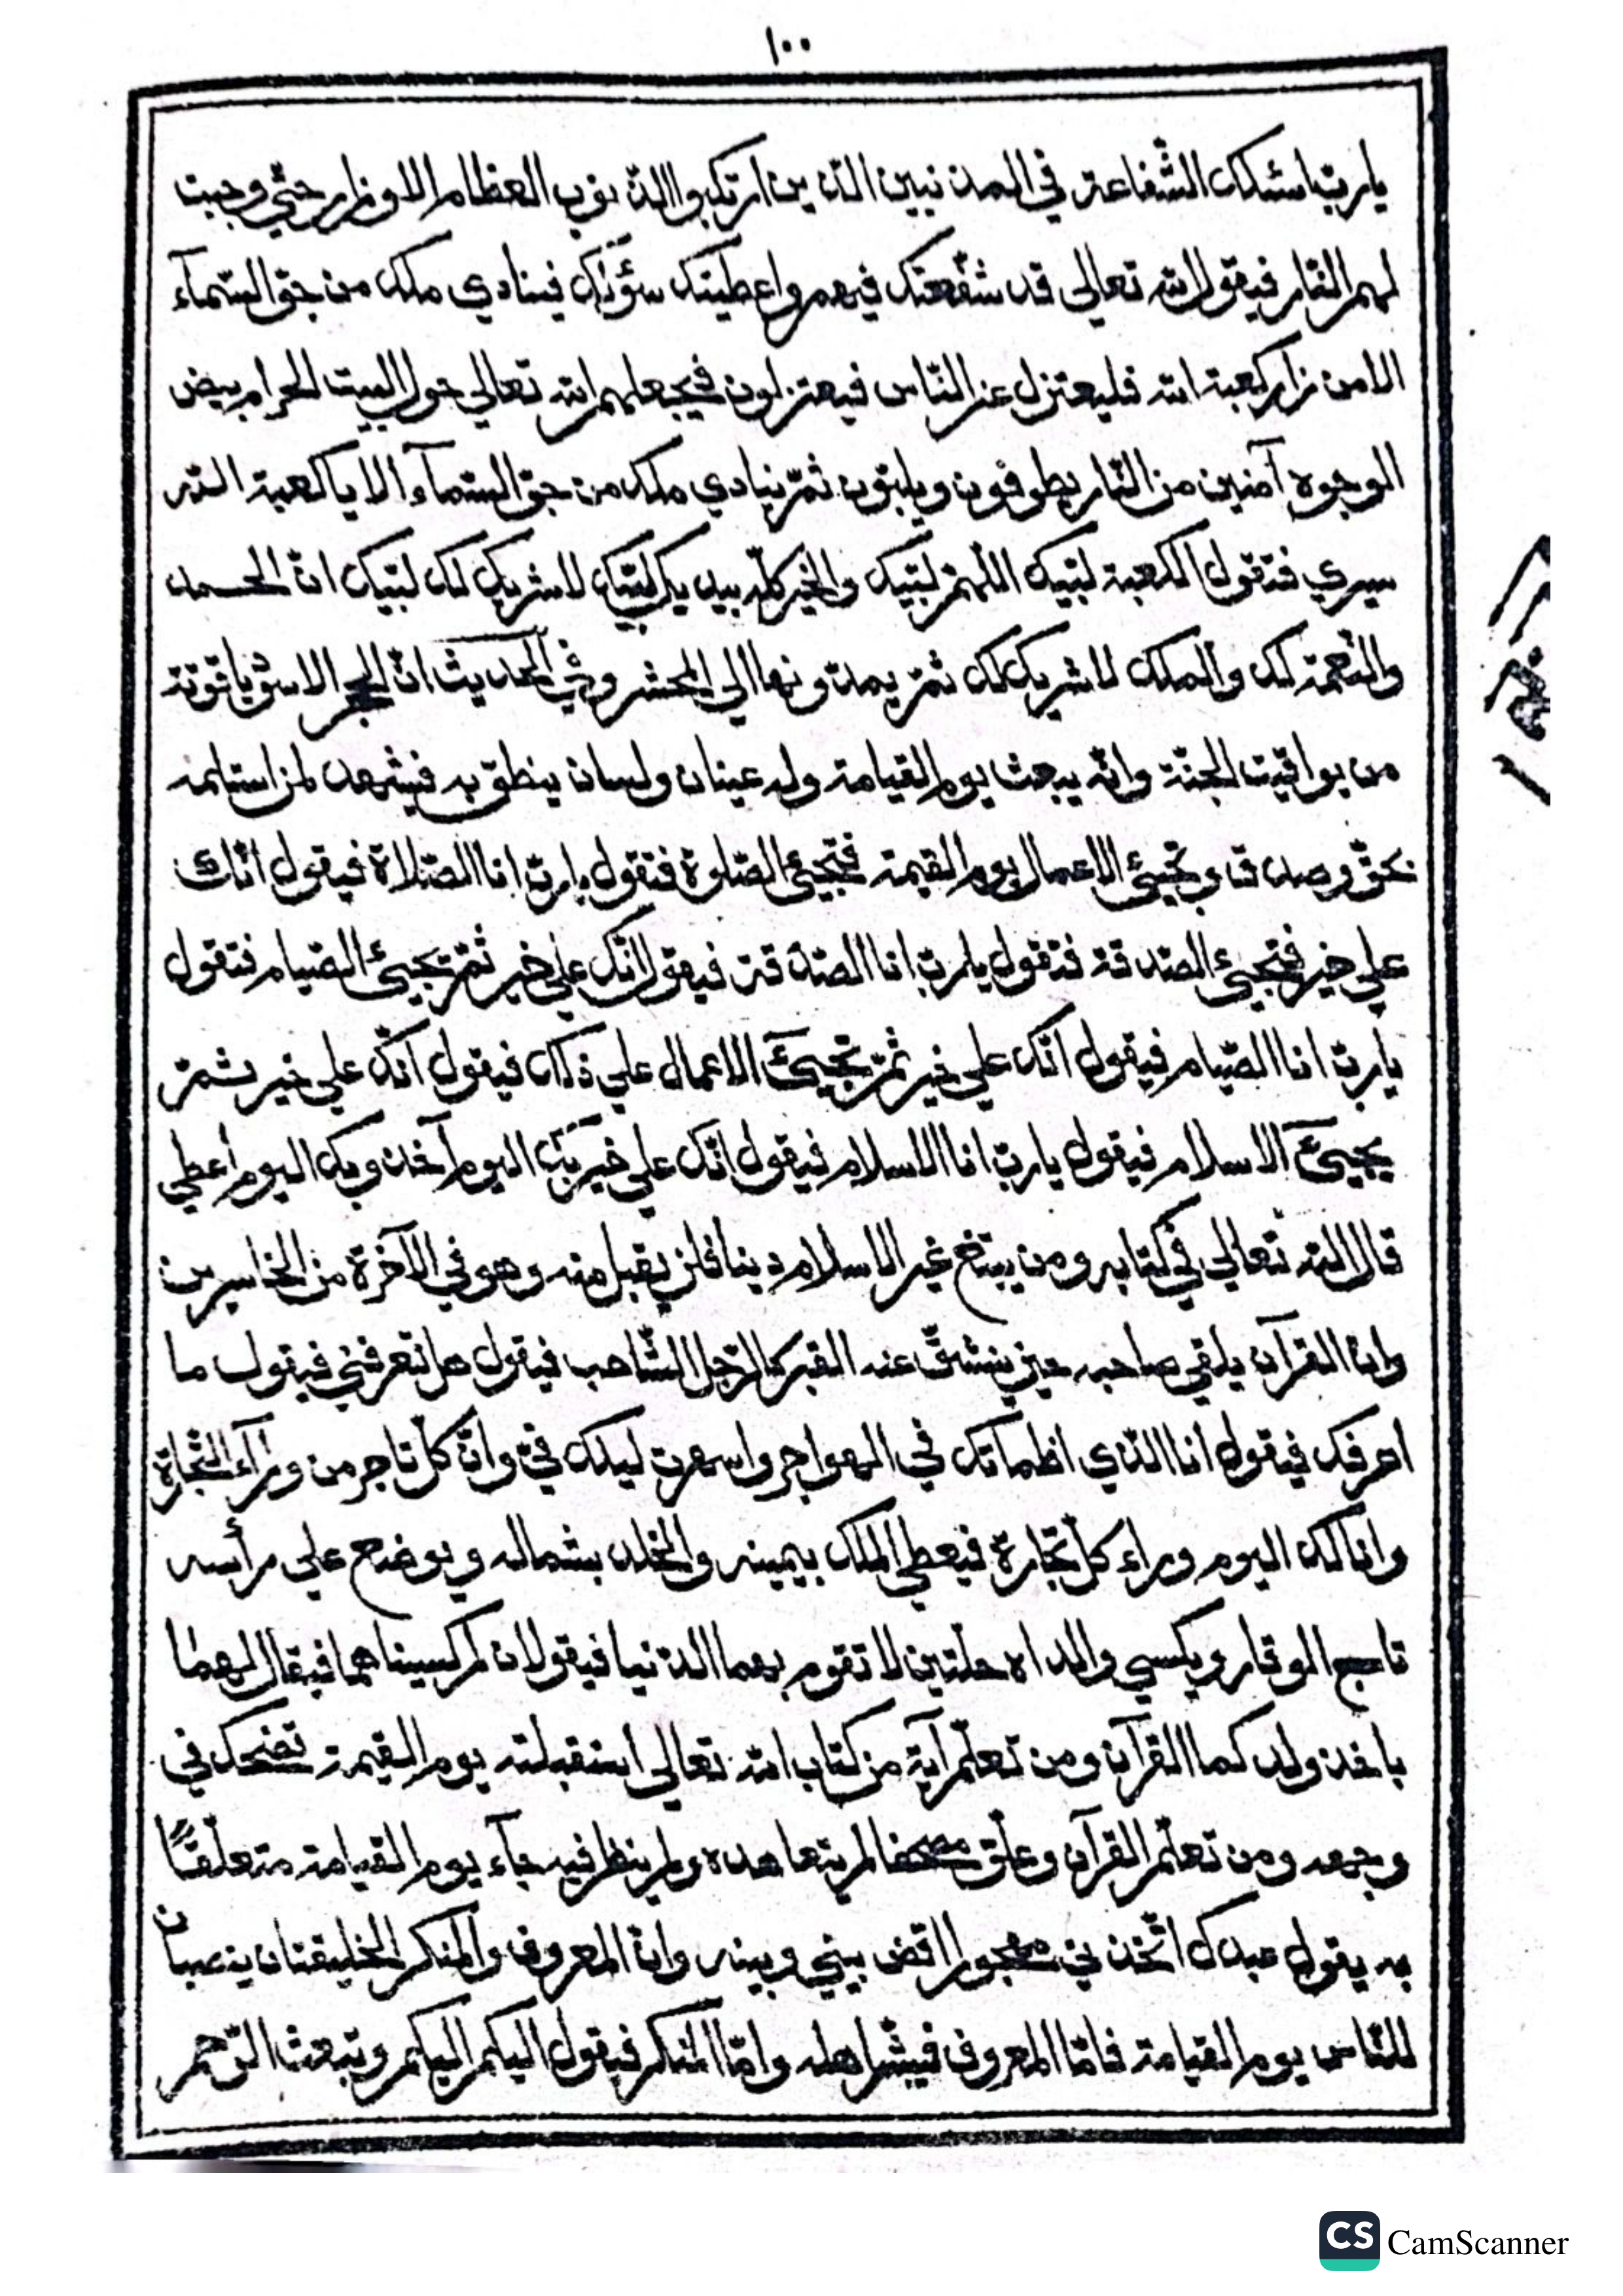 ١٠٠
يارب اسئلك الشفاعة في المذنبين الذين ارتكبوا الذنوب العظام الاوزار حتي وجبت
لهم النار فيقول الله تعالي قد شفعتك فيهم واعطيتك سؤلك فينادي ملك من جو السمآء
الا من زار كعبة الله فليعتزل عن الناس فيعتزلون فيجعلهم الله تعالي حول البيت الحرام بيض
الوجوه آمنين من النار يطوفون ويلبون ثمّ ينادي ملك من جوّ السمآء الا يا كعبة الله
سيري فتقول الكعبة لبّيك اللّهمّ لبّيك والخير كلّه بيديك لبّيك لا شريك لك لبّيك انّ الحمد
والنّعمة لك والملك لا شريك لك ثمّ يمدّونها الي المحشر وفي الحديث انّ الحجر الاسود ياقوتة
من يواقيت الجنّة وانّه يبعث يوم القيامة وله عينان ولسان ينطق به فيشهد لمن استلمه
بحقّ وصدق وتجيئ الاعمال يوم القيمة فتجيئ الصّلوة فتقول يارب انا الصّلاة فيقول انّك
علي خير فتجيئ الصّدقة فتقول يارب انا الصّدقة فيقول انّك علي خير ثمّ يجيئ الصّيام فتقول
يارب انا الصّيام فيقول انّك علي خير ثمّ تجيئ الاعمال علي ذلك فيقول انّك علي خير ثمّ
يجيئ الاسلام فيقول يارب انا الاسلام فيقول انّك علي خير بك اليوم آخذ وبك اليوم اعطي
قال الله تعالي في كتابه ومن يبتغ غير الاسلام دينا فلن يقبل منه وهو في الآخرة من الخاسرين
وانّ القرآن يلقي صاحبه حين ينشقّ عنه القبر كالرّجل الشّاحب فيقول هل تعرفني فيقول ما
اعرفك فيقول انا الذي اظمأتك في الهواجر واسهرت ليلك في وانّ كلّ تاجر من ورآء التّجارة
وانا لك اليوم وراء كل تجارة فيعطي الملك بيمينه والخلد بشماله ويوضع علي رأسه
تاج الوقار ويكسي والداه حلّتين لا تقوم بهما الدّنيا فيقولان لم كسيناهما فيقال لهما
باخذ ولدكما القرآن ومن تعلّم آية من كتاب الله تعالي استقبلته يوم القيمة تضحك في
وجهه ومن تعلّم القرآن وعلّق مصحفا لم يتعاهده ولم ينظر فيه جآء يوم القيامة متعلّقًا
به يقول عبدك اتّخذني مهجورا اقض بيني وبينه وانّ المعروف والمنكر لخليقتان ينصبان
للنّاس يوم القيامة فامّا المعروف فيبشّر اهله وامّا المنكر فيقول اليكم اليكم وتبعث الرّحم
CS CamScanner